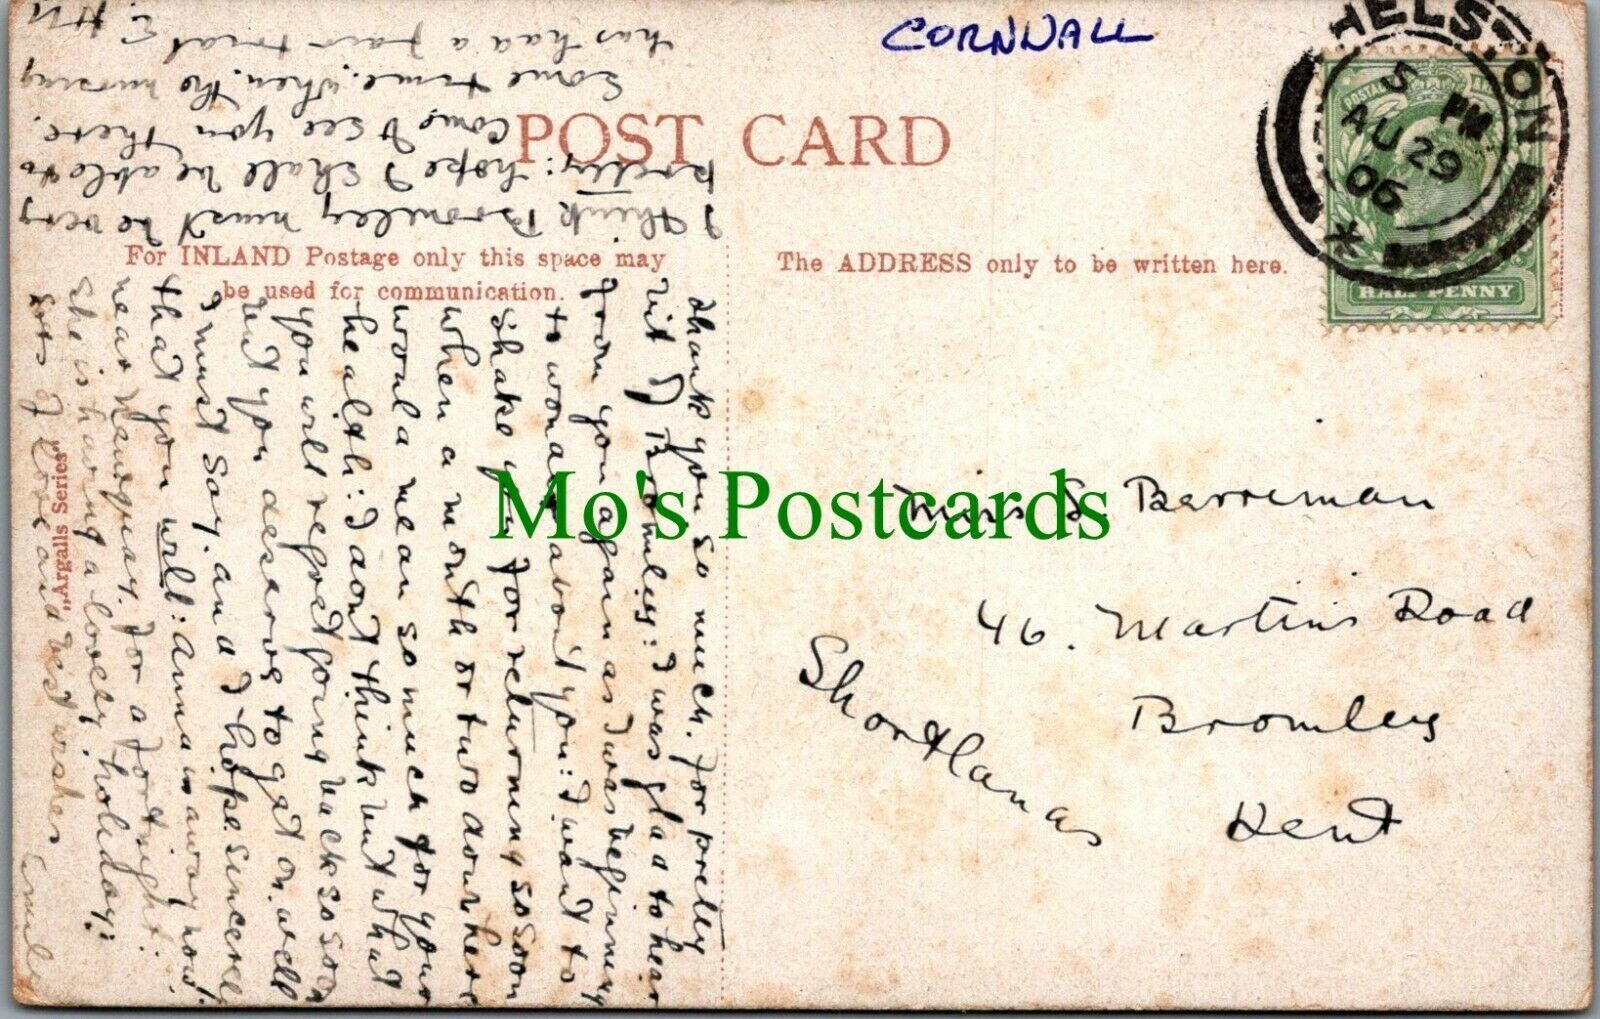 CORNWALL
HELSTON
5 PM
AU 29
06
POSTAGE
HALF PENNY
POST CARD
For INLAND Postage only this space may
be used for communication.
The ADDRESS only to be written here.
„Argalls Series"
Mo's Postcards
Miss S. Berreman
46. Martins Road
Bromley
Shortlands
Kent
Thank you so much. for pretty
bit of Bromley: I was glad to hear
from you again as I was beginning
to wonder about you: I want to
shake you for returning so soon
when a month or two down here
would mean so much for your
health: I dont think but what
you will regret going back so soon
but you deserve to get on. well
I must say. and I hope. sincerely
that you will: Anna is away now!
near Newquay. for a fortnight.
She is having a lovely. holiday:
lots of love and best wishes Emily
I think Bromley must be very
pretty: hope I shall be able to
come & see you there.
some time. when. the nursing
has had a fair trial E. H